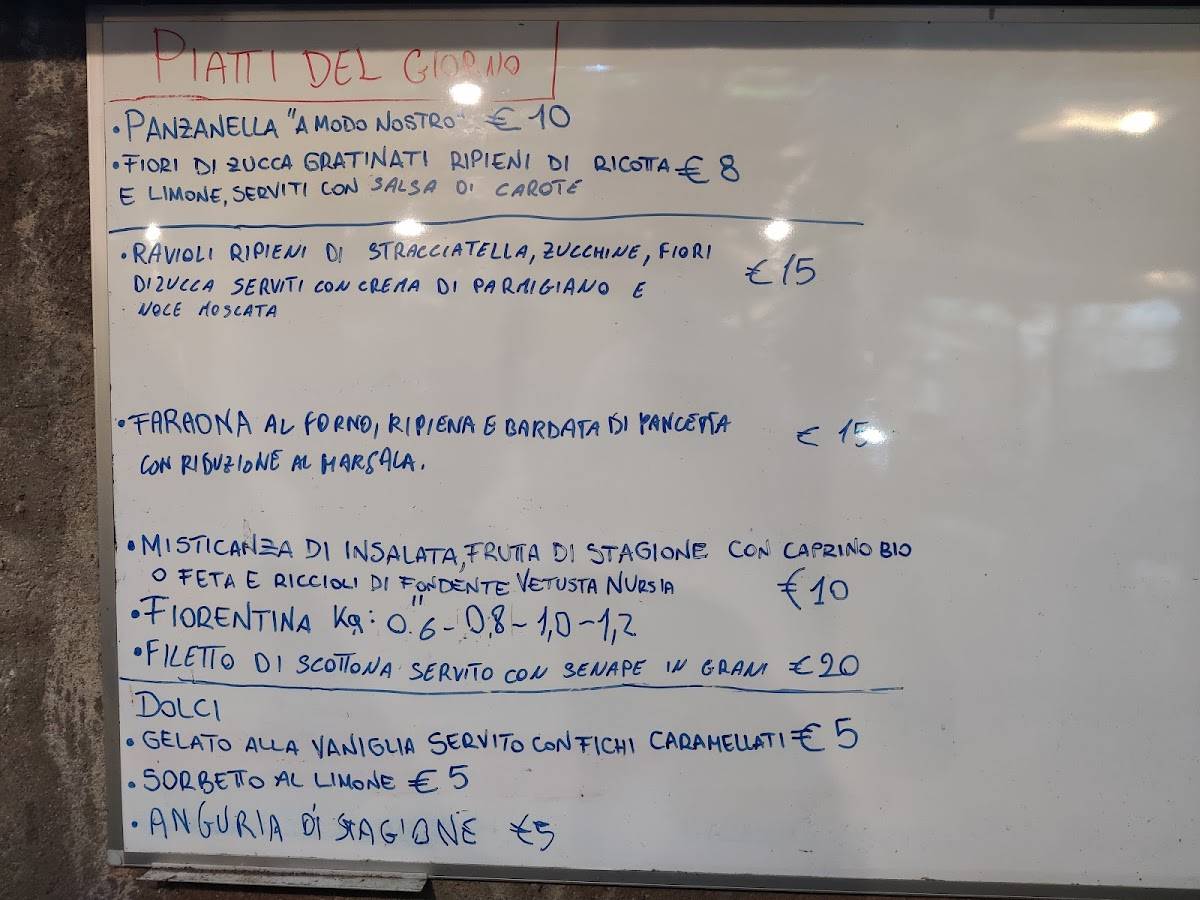 PIATTI DEL GIORNO
• PANZANELLA "A MODO NOSTRO" € 10
• FIORI DI ZUCCA GRATINATI RIPIENI DI RICOTTA € 8
E LIMONE, SERVITI CON SALSA DI CAROTE
• RAVIOLI RIPIENI DI STRACCIATELLA, ZUCCHINE, FIORI
DI ZUCCA SERVITI CON CREMA DI PARMIGIANO E € 15
NOCE MOSCATA
• FARAONA AL FORNO, RIPIENA E BARDATA DI PANCETTA € 15
CON RIDUZIONE AL MARSALA.
• MISTICANZA DI INSALATA, FRUTTA DI STAGIONE CON CAPRINO BIO
O FETA E RICCIOLI DI FONDENTE VETUSTA NURSIA € 10
• FIORENTINA Kg: 0.6 - 0,8 - 1,0 - 1,2
• FILETTO DI SCOTTONA SERVITO CON SENAPE IN GRANI € 20
DOLCI
• GELATO ALLA VANIGLIA SERVITO CON FICHI CARAMELLATI € 5
• SORBETTO AL LIMONE € 5
• ANGURIA DI STAGIONE €5